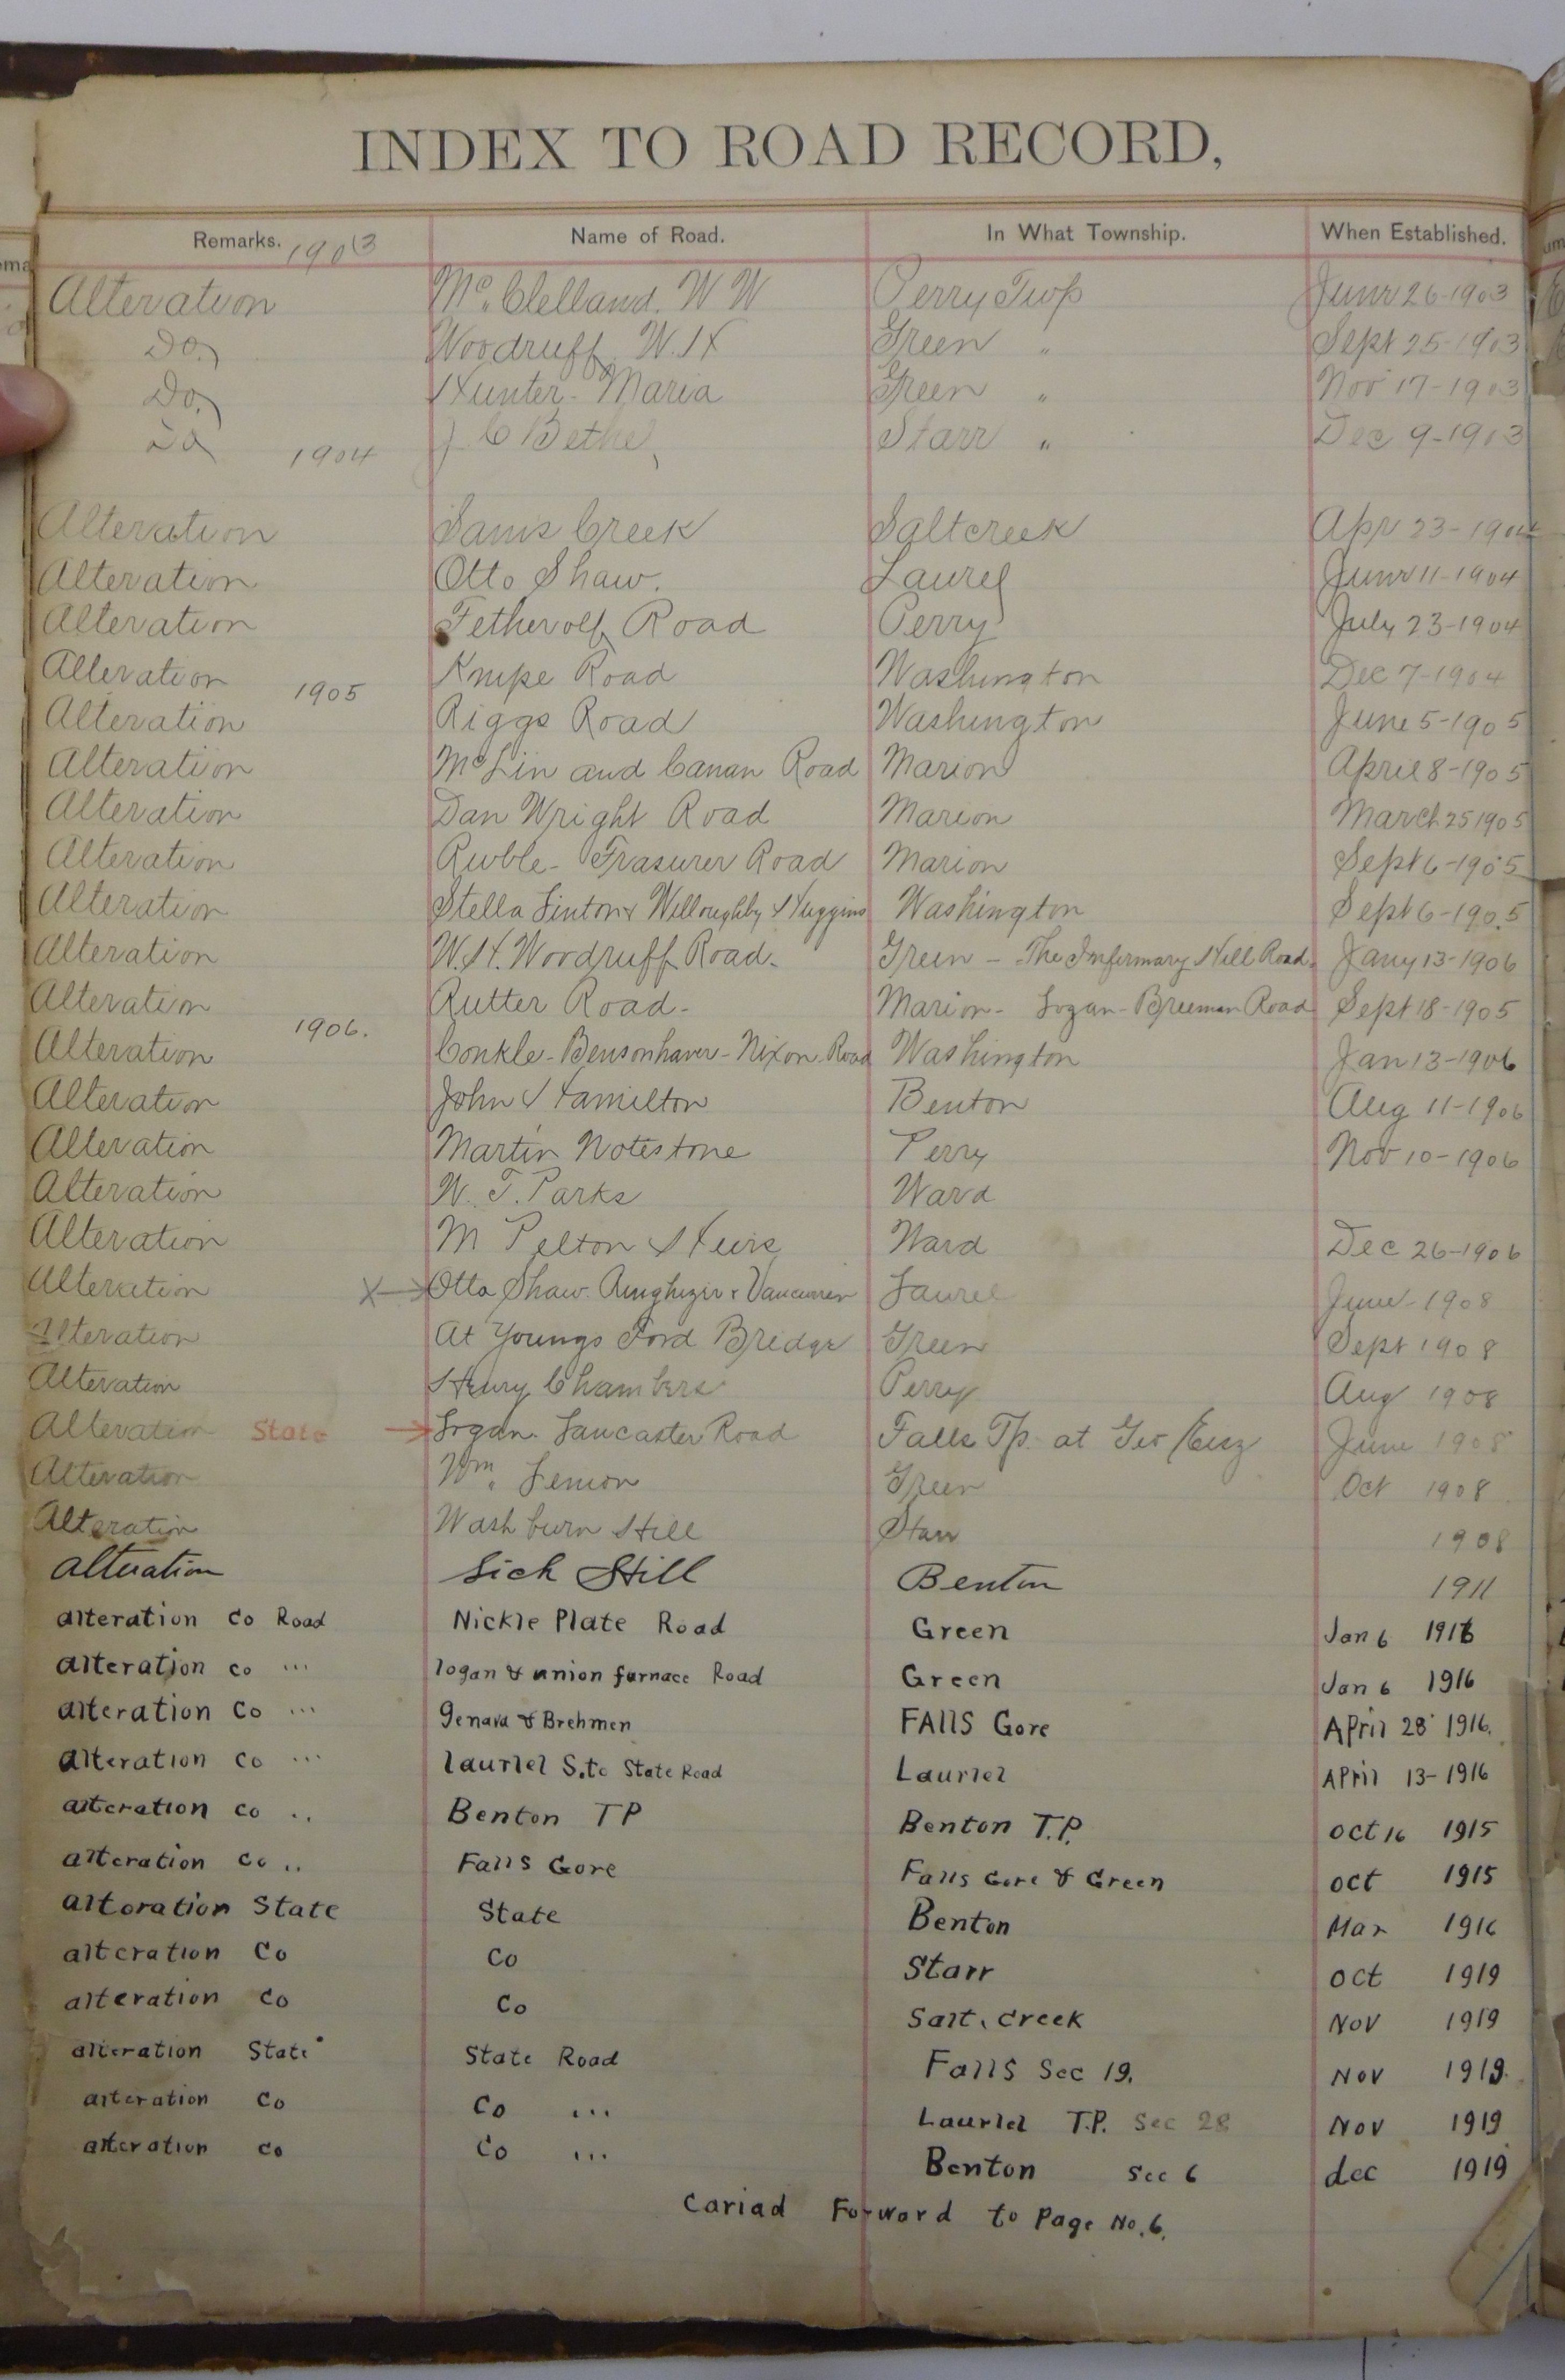 INDEX TO ROAD RECORD,
Remarks. 1903 Name of Road. In What Township. When Established.
Alteration Mc Clelland. W W Perry Twp June 26-1903
Do. Woodruff, W. H Green " Sept 25-1903
Do. Hunter- Maria Green " Nov 17-1903
Do J C Bethel Starr " Dec 9-1903
1904
Alteration Sams Creek Saltcreek Apr 23-1904
Alteration Otto Shaw. Laurel June 11-1904
Alteration Fetherolf Road Perry July 23-1904
Alteration Knipe Road Washington Dec 7-1904
1905
Alteration Riggs Road Washington June 5-1905
Alteration McLin and Canan Road Marion April 8-1905
Alteration Dan Wright Road Marion March 25 1905
Alteration Ruble- Frasurer Road Marion Sept 6-1905
Alteration Stella Linton & Willoughby Huggins Washington Sept 6-1905
Alteration W. H. Woodruff Road. Green - The Infirmary Hill Road. Jany 13-1906
Alteration Rutter Road- Marion- Logan-Bremen Road Sept 18-1905
1906.
Alteration Conkle-Bensonhaver-Nixon-Road Washington Jan 13-1906
Alteration John Hamilton Benton Aug 11-1906
Alteration Martin Notestone Perry Nov 10-1906
Alteration W. T. Parks Ward
Alteration M Pelton Heirs Ward Dec 26-1906
Alteration X→ Otto Shaw. & Laurel June-1908
Alteration At Youngs Ford Bridge Green Sept 1908
Alteration Henry Chambers Perry Aug 1908
Alteration State → Logan. Lancaster Road Falls Tp. at Geo June 1908
Alteration Wm. Lemon Green Oct 1908
Alteration Washburn Hill Starr 1908
alteration Lick Hill Benton 1911
alteration co Road Nickle Plate Road Green Jan 6 1916
alteration co ... logan & union furnace Road Green Jan 6 1916
alteration Co ... genava & Brehmen FAllS Gore April 28 1916.
alteration co ... lauriel S.to State Road Lauriel APril 13-1916
alteration co .. Benton TP Benton T.P. oct 16 1915
alteration co .. Falls Gore Falls Gore & Green oct 1915
alteration State State Benton Mar 1916
alteration Co Co Starr oct 1919
alteration Co Co Salt. creek Nov 1919
alteration State State Road Falls Sec 19. Nov 1919.
alteration Co Co ... Lauriel T.P. Sec 28 Nov 1919
alteration co Co ... Benton Sec 6 dec 1919
cariad Forward to Page No. 6.